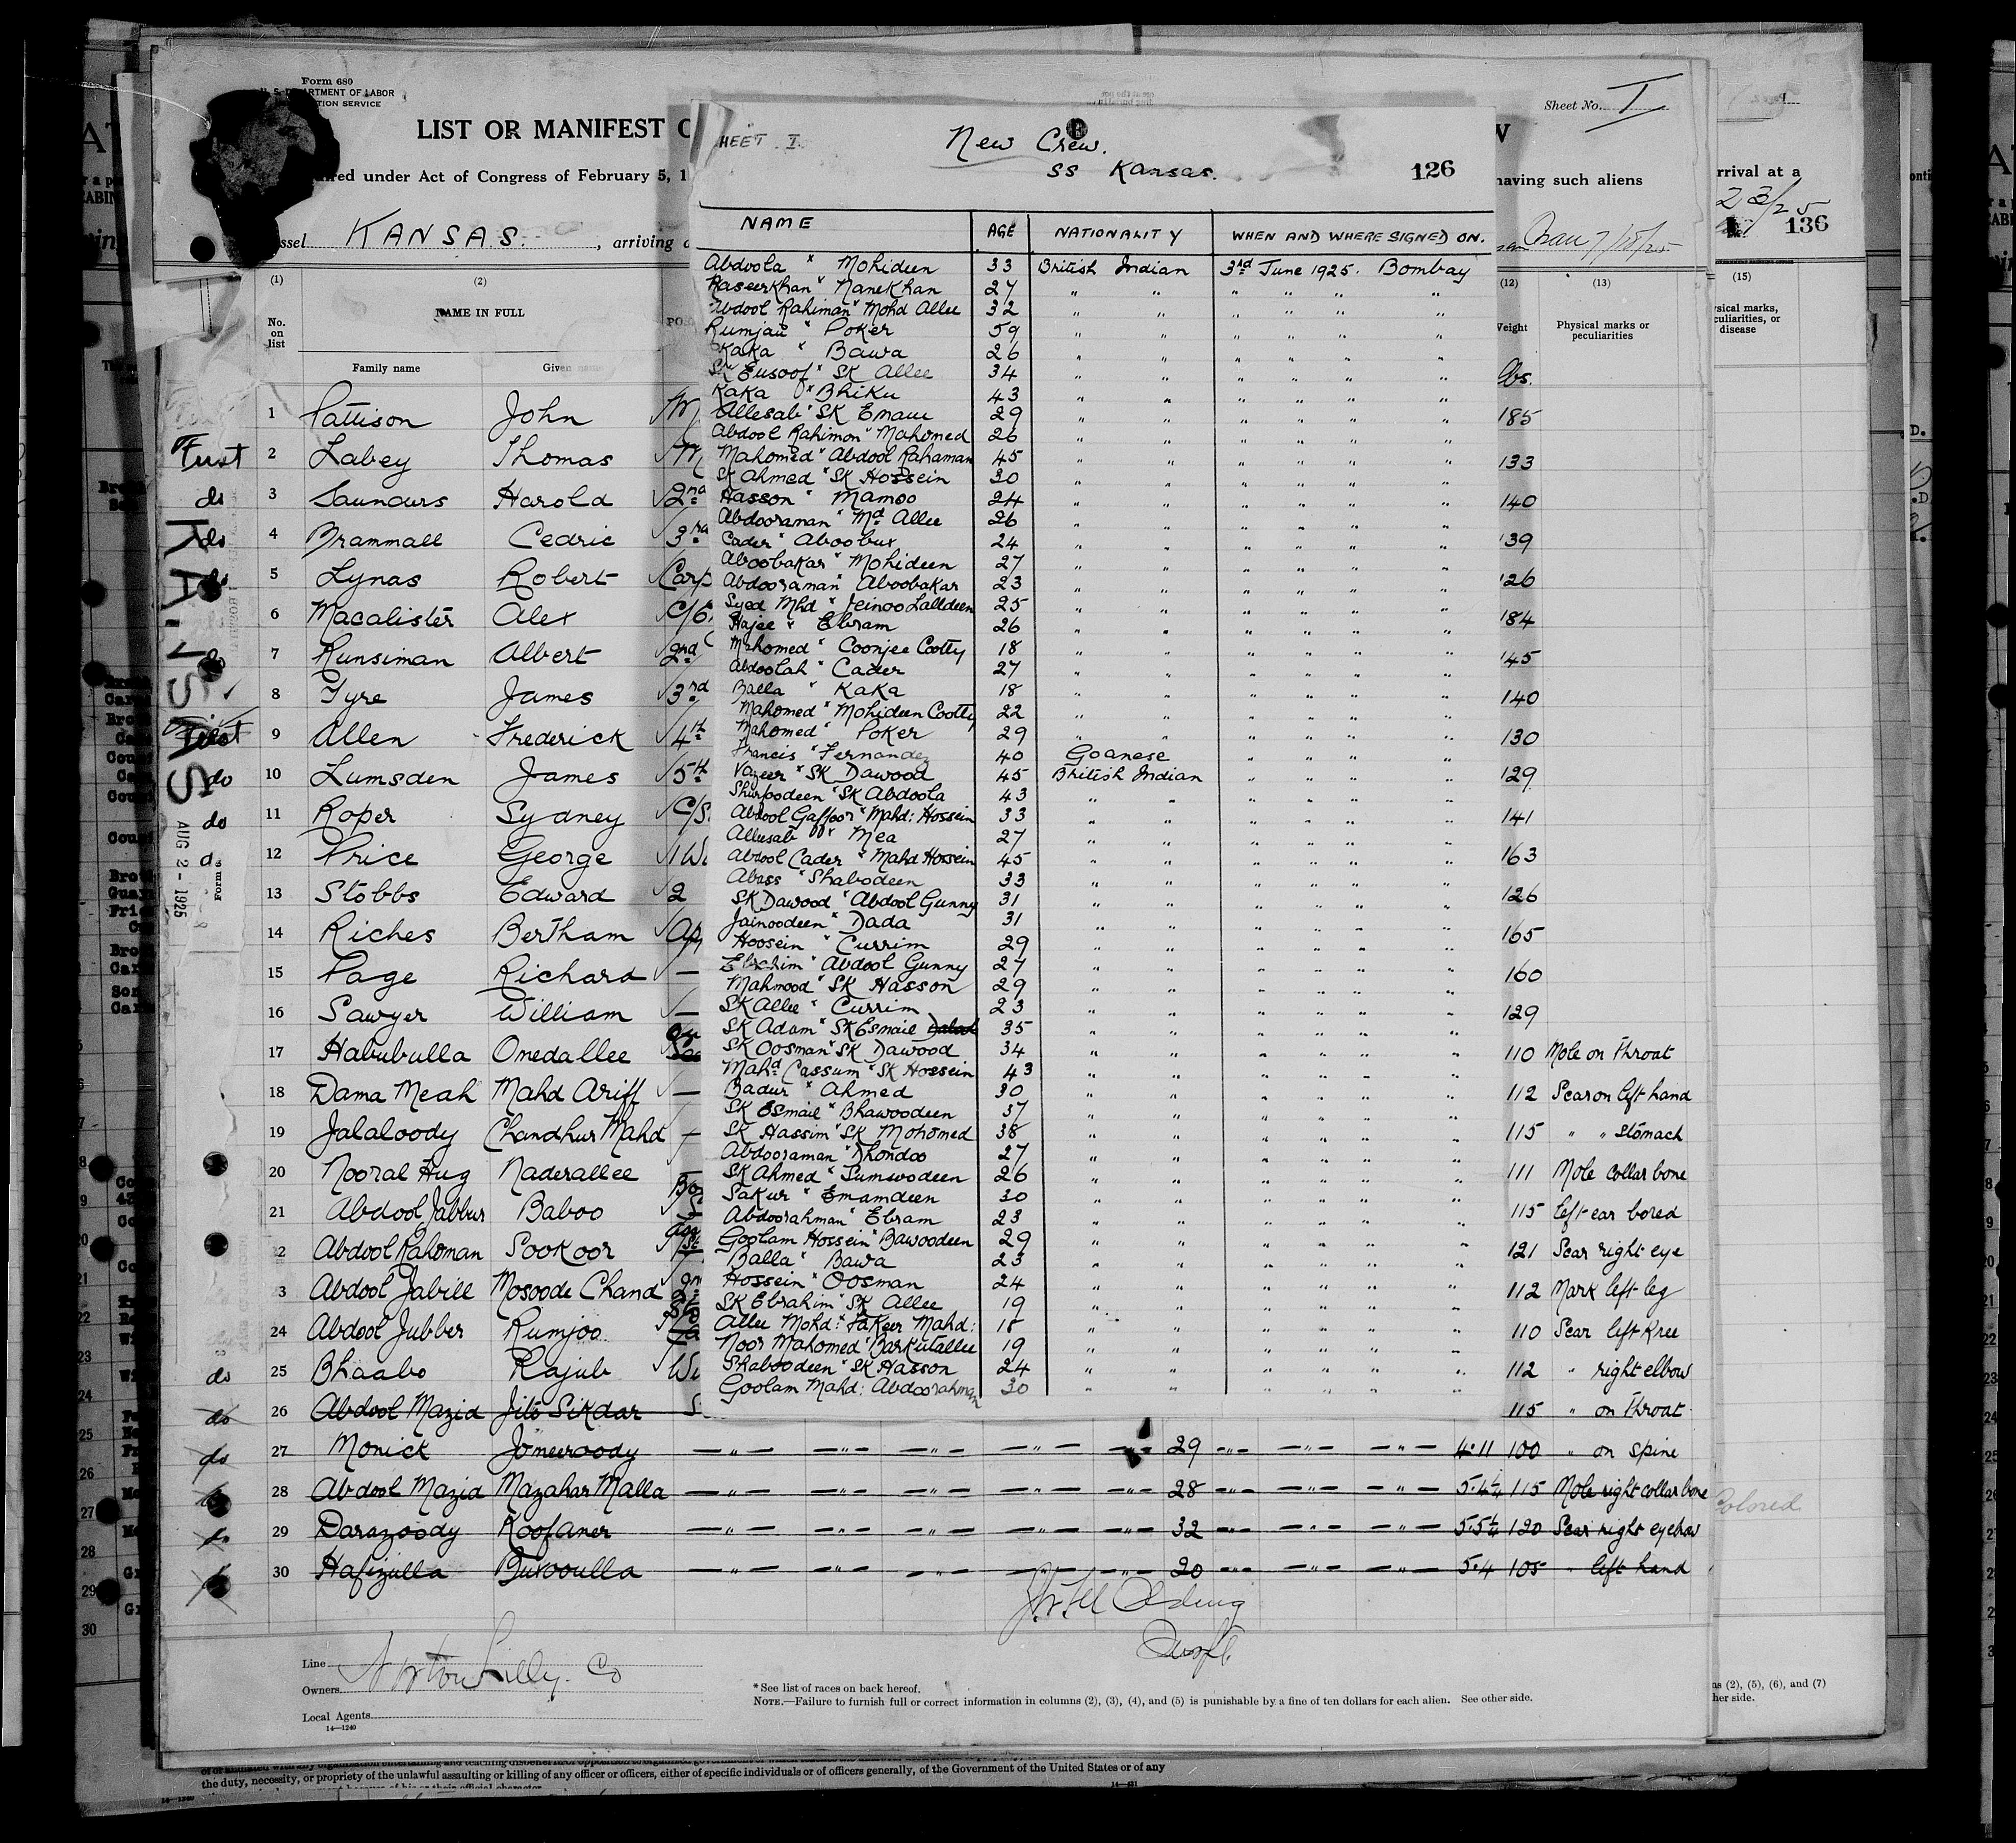 Form 680
U. S. DEPARTMENT OF LABOR
Sheet No. I
LIST OR MANIFEST
under Act of Congress of February 5, 1
having such aliens
KANSAS. , arriving
(1) (2) (12) (13)
No. on list
NAME IN FULL
Weight
Physical marks or peculiarities
Family name Given name
lbs.
1 Pattison John 185
First 2 Labey Thomas 133
do 3 Saunders Harold 2nd 140
do 4 Brammall Cedric 3rd 139
5 Lynas Robert Carp 126
6 Macalister Alex 184
7 Runsiman Albert 2nd 145
8 Tyre James 3rd 140
9 Allen Frederick 4th 130
do 10 Lumsden James 5th 129
do 11 Roper Sydney 141
12 Price George 163
13 Stobbs Edward 2 126
14 Riches Bertham 165
15 Page Richard — 160
16 Sawyer William — 129
17 Habubulla Onedallee 110 Mole on throat
18 Dama Meah Mahd Ariff — 112 Scar on left hand
19 Jalaloody Chandhur Mahd — 115 " " Stomach
20 Nooral Hug Naderallee 111 Mole collar bone
21 Abdool Jabbur Baboo 115 left ear bored
2 Abdool Rahoman Sookoor 121 Scar right eye
3 Abdool Jabill Mosoode Chand 112 Mark left leg
24 Abdool Jubber Rumjoo 110 Scar left knee
do 25 Bhaabo Rajub 112 " right elbow
do 26 Abdool Mazid Jito Sikdar 115 " on throat
do 27 Monick Jomeeroody 29 4.11 100 " on spine
28 Abdool Mazid Mazahar Malla 28 5.4¼ 115 Mole right collar bone
29 Darazoody Koofaner 32 5.5¼ 120 Scar right eyebrow
30 Hafizulla 20 5.4 105 " left hand
Line Norton Lilly Co
Owners
Local Agents
14—1240
* See list of races on back hereof.
NOTE.—Failure to furnish full or correct information in columns (2), (3), (4), and (5) is punishable by a fine of ten dollars for each alien. See other side.
HEET I.
New Crew.
SS Kansas.
126
NAME AGE NATIONALITY WHEN AND WHERE SIGNED ON.
Abdoola x Mohideen 33 British Indian 3rd June 1925. Bombay
Naseerkhan " Nanekhan 27 " " " " " "
Abdool Rahiman " Mohd Allee 32 " " " " " "
Rumjau " Poker 59 " " " " " "
Kaka " Bawa 26 " " " " " "
SK Eusoof " SK Allee 34 " " " " " "
Kaka " Bhiku 43 " " " " " "
Allesab " SK Emam 29 " " " " " "
Abdool Rahimon " Mahomed 26 " " " " " "
Mahomed " Abdool Rahaman 45 " " " " " "
SK Ahmed " SK Hossein 30 " " " " " "
Hasson " Mamoo 24 " " " " " "
Abdooraman " Md Allee 26 " " " " " "
Cader " Aboobux 24 " " " " " "
Aboobakar " Mohideen 27 " " " " " "
Abdooraman " Aboobakar 23 " " " " " "
Syed Mhd " Jeinoo Lalldeen 25 " " " " " "
Hajee " Ebram 26 " " " " " "
Mahomed " Coonjee Cootty 18 " " " " " "
Abdoolah " Cader 27 " " " " " "
Balla " Kaka 18 " " " " " "
Mahomed " Mohideen Cootty 22 " " " " " "
Mahomed " Poker 29 " " " " " "
Francis " Fernandez 40 Goanese " " " "
Vazeer " SK Dawood 45 British Indian " " " "
Shurfoodeen " SK Abdoola 43 " " " " " "
Abdool Gaffoor " Mahd: Hossein 33 " " " " " "
Alleesab " Mea 27 " " " " " "
Abdool Cader " Mahd Hossein 45 " " " " " "
Abass " Shabodeen 33 " " " " " "
SK Dawood " Abdool Gunny 31 " " " " " "
Jainoodeen " Dada 31 " " " " " "
Hoosein " Currim 29 " " " " " "
Ebrahim " Abdool Gunny 27 " " " " " "
Mahmood " SK Hasson 29 " " " " " "
SK Allee " Currim 23 " " " " " "
SK Adam " SK Esmail 35 " " " " " "
SK Oosman " SK Dawood 34 " " " " " "
Mahd Cassum " SK Hossein 43 " " " " " "
Badur " Ahmed 30 " " " " " "
SK Esmail " Bhawoodeen 37 " " " " " "
SK Hassim " SK Mohomed 38 " " " " " "
Abdooraman " Dhondoo 27 " " " " " "
SK Ahmed " Sumsoodeen 26 " " " " " "
Sakur " Emamdeen 30 " " " " " "
Abdoorahman " Ebram 23 " " " " " "
Goolam Hossein " Bawoodeen 29 " " " " " "
Balla " Bawa 23 " " " " " "
Hossein " Oosman 24 " " " " " "
SK Ebrahim " SK Allee 19 " " " " " "
Allee Mohd: " Fakeer Mahd: 18 " " " " " "
Noor Mahomed " Barkutallee 19 " " " " " "
Shaboodeen " SK Hasson 24 " " " " " "
Goolam Mahd: Abdoorahman 30 " " " " " "
KANSAS
AUG 2 - 1925
rrival at a
136
(15)
Colored
ns (2), (5), (6), and (7)
her side.
the duty, necessity, or propriety of the unlawful assaulting or killing of any officer or officers, either of specific individuals or of officers generally, of the Government of the United States or of any